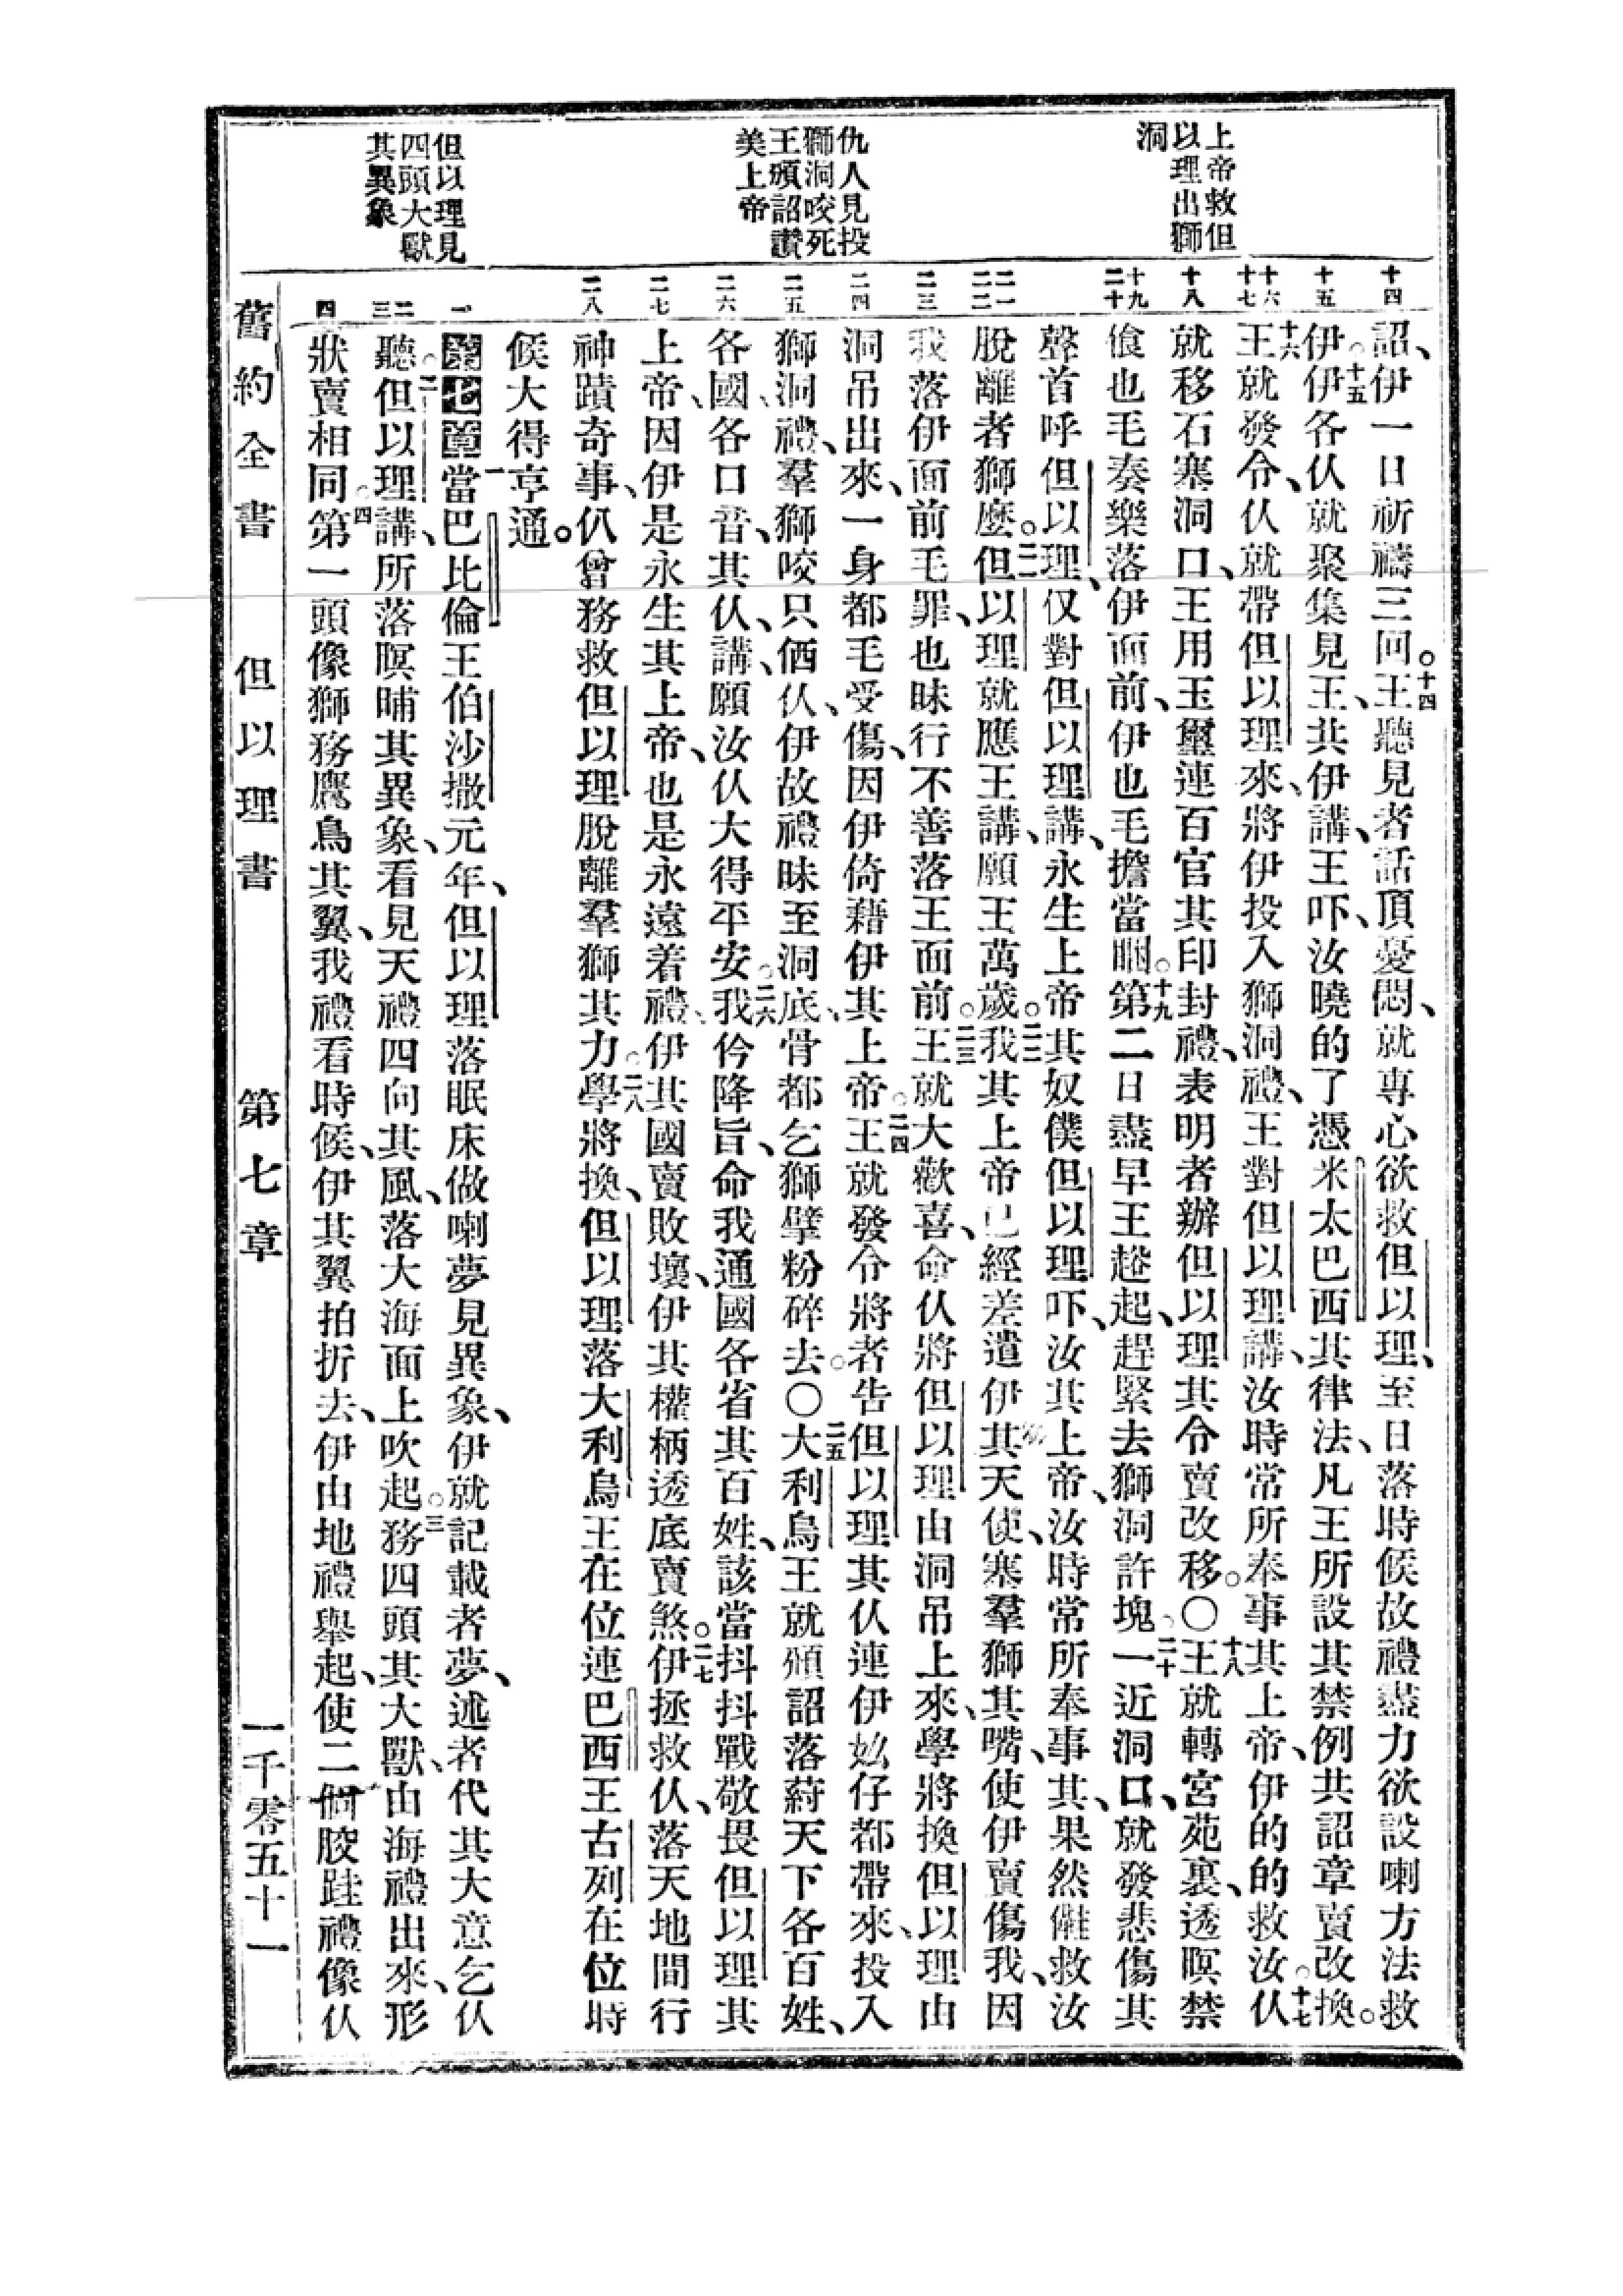 上帝救但
以理出獅
洞
仇人見投
獅洞咬死
王頒詔讚
美上帝
但以理見
四頭大獸
其異象
十四
十五
十六
十七
十八
十九
二十
二一
二二
二三
二四
二五
二六
二七
二八
一
二
三
四
詔、伊一日祈禱三回。十四王聽見者話頂憂悶、就專心欲救但以理、至日落時候故禮盡力欲設喇方法救
伊。十五伊各仈就聚集見王、共伊講、王吓、汝曉的了憑米太巴西其律法、凡王所設其禁例共詔章賣改換。
十六王就發令、仈就帶但以理來、將伊投入獅洞禮、王對但以理講、汝時常所奉事其上帝、伊的的救汝。十七仈
就移石塞洞口、王用玉璽連百官其印封禮、表明者辦但以理其令賣改移。○十八王就轉宮苑裏、透暝禁
飧也毛奏樂落伊面前、伊也毛擔當睏。十九第二日盡早王趂起、趕緊去獅洞許塊。二十一近洞口、就發悲傷其
聲首呼但以理、仅對但以理講、永生上帝其奴僕但以理吓、汝其上帝、汝時常所奉事其、果然𠍿救汝
脫離者獅麼。二一但以理就應王講、願王萬歲。二二我其上帝已經差遣伊其天使、塞羣獅其嘴、使伊賣傷我、因
我落伊面前毛罪、也昧行不善落王面前。二三王就大歡喜、命仈將但以理由洞吊上來、學將換但以理由
洞吊出來、一身都毛受傷、因伊倚藉伊其上帝。二四王就發令將者告但以理其仈連伊妚仔都帶來、投入
獅洞禮、羣獅咬只㑚仈、伊故禮昧至洞底、骨都乞獅擘粉碎去。○二五大利烏王就頒詔落蒔天下各百姓、
各國、各口音、其仈、講、願汝仈大得平安。二六我仱降旨、命我通國各省其百姓、該當抖抖戰敬畏但以理其
上帝、因伊是永生其上帝、也是永遠着禮、伊其國賣敗壞、伊其權柄透底賣煞。二七伊拯救仈、落天地間行
神蹟奇事、仈曾務救但以理脫離羣獅其力。二八學將換、但以理落大利烏王在位連巴西王古列在位時
候大得亨通。
第七章一當巴比倫王伯沙撒元年、但以理落眠床做喇夢見異象、伊就記載者夢、述者代其大意、乞仈
聽。二但以理講、所落暝晡其異象、看見天禮四向其風、落大海面上吹起。三務四頭其大獸、由海禮出來、形
狀賣相同。四第一頭像獅務鷹鳥其翼、我禮看時候、伊其翼拍折去、伊由地禮舉起、使二個骹跬禮像仈
舊約全書 但以理書 第七章 一千零五十一